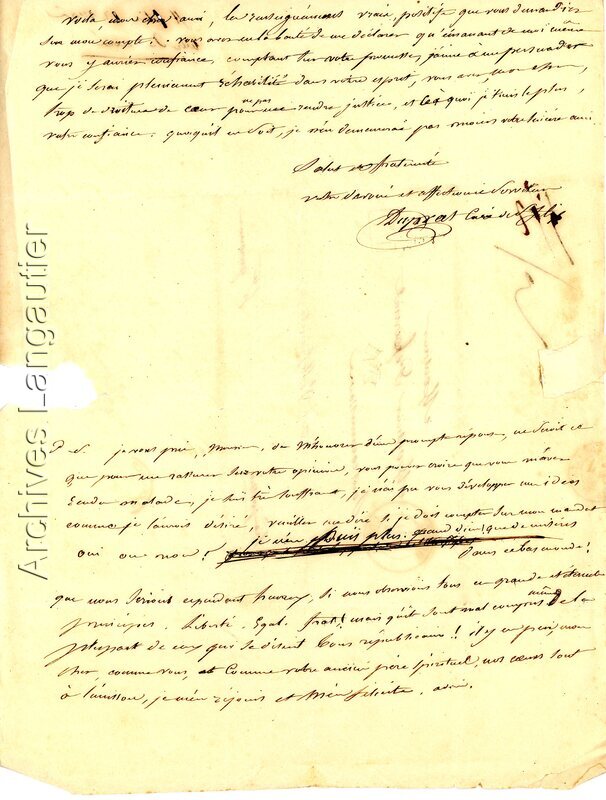 voila mon cher ami, les renseignements vrais, positifs que vous demandiez
sur mon compte. vous avez eu la bonté de me déclarer qu'émanant de moi même
vous y auriez confiance, comptant sur votre promesse, j'aime à me persuader
que je serai pleinement réhabilité dans votre esprit, vous avez, mon cher,
trop de droiture de cœur pour ne pas me rendre justice, et ce à quoi je tiens le plus,
votre confiance. quoiqu'il en soit, je n'en demeurerai pas moins votre sincère ami
Salut et fraternité
votre dévoué et affectionné serviteur
Duprat Curé de
P S. je vous prie, Monsieur, de m'honorer d'une prompte réponse, ne serait ce
que pour me rassurer sur votre opinion, vous pouvez croire que vous m'avez
rendu malade, je suis très souffrant, je n'ai pu vous développer mes idées
comme je l'aurois désiré, veuillez me dire si je dois compter sur mon mandat
oui ou non! je n'en puis plus. grand dieu! que de misères
dans ce bas monde!
que nous serions cependant heureux, si nous observions tous ce grand et éternel
principe. Liberté. Egal. frat.! mais qu'ils sont mal compris même de la
plupart de ceux qui se disent bons républicains!! il y en a peu, mon
cher, comme vous, et comme votre ancien père spirituel, nos cœurs sont
à l'unisson, je m'en réjouis et m'en félicite. adieu.
Archives Langautier